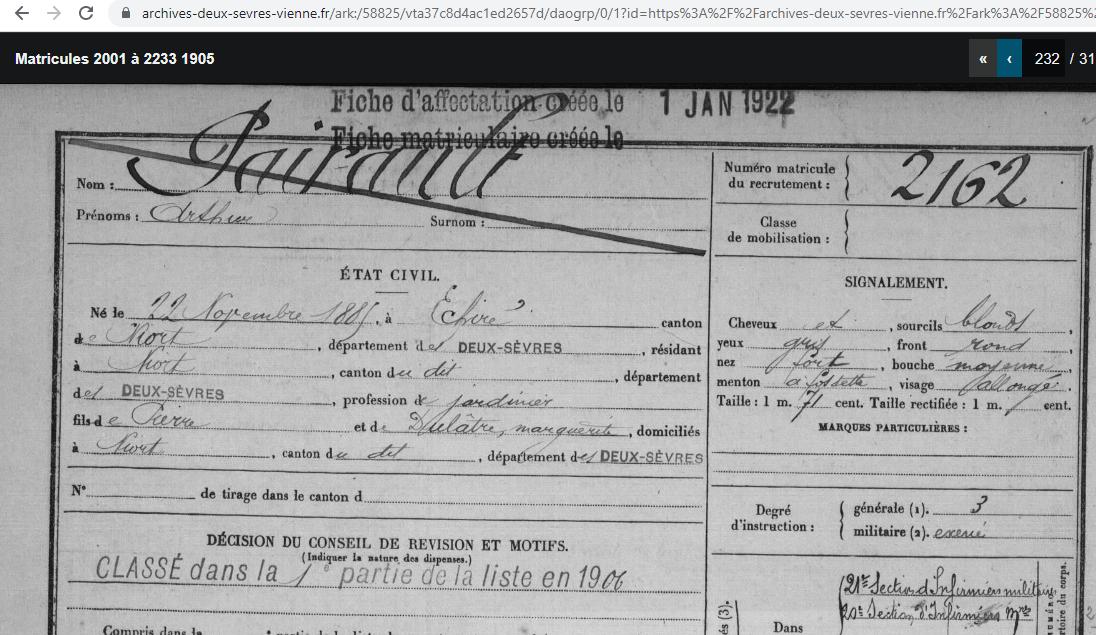 archives-deux-sevres-vienne.fr/ark:/58825/vta37c8d4ac1ed2657d/daogrp/0/1?id=https%3A%2F%2Farchives-deux-sevres-vienne.fr%2Fark%3A%2F58825%2
Matricules 2001 à 2233 1905
« ‹ 232 / 31
Fiche d'affectation créée le 1 JAN 1922
Fiche matriculaire créée le
Nom : Pairault
Prénoms : Arthur Surnom :
Numéro matricule du recrutement : 2162
Classe de mobilisation :
ÉTAT CIVIL.
Né le 22 Novembre 1885, à Echiré canton
de Niort, département des DEUX-SÈVRES, résidant
à Niort, canton du dit, département
des DEUX-SÈVRES, profession de jardinier
fils de Pierre et de Mulâtre, marguerite, domiciliés
à Niort, canton du dit, département des DEUX-SÈVRES
N° de tirage dans le canton d
DÉCISION DU CONSEIL DE REVISION ET MOTIFS.
(Indiquer la nature des dispenses.)
CLASSÉ dans la 1e partie de la liste en 1906
Compris dans la
SIGNALEMENT.
Cheveux et, sourcils blonds,
yeux gris, front rond
nez fort, bouche moyenne
menton à fossette, visage allongé.
Taille : 1 m. 71 cent. Taille rectifiée : 1 m. cent.
MARQUES PARTICULIÈRES :
Degré d'instruction :
générale (1). 3
militaire (2). exercé
21e Section d'Infirmiers militaires
20e Section d'Infirmiers Mres
Dans
és (3).
NUMÉRO
rtoire du corps.